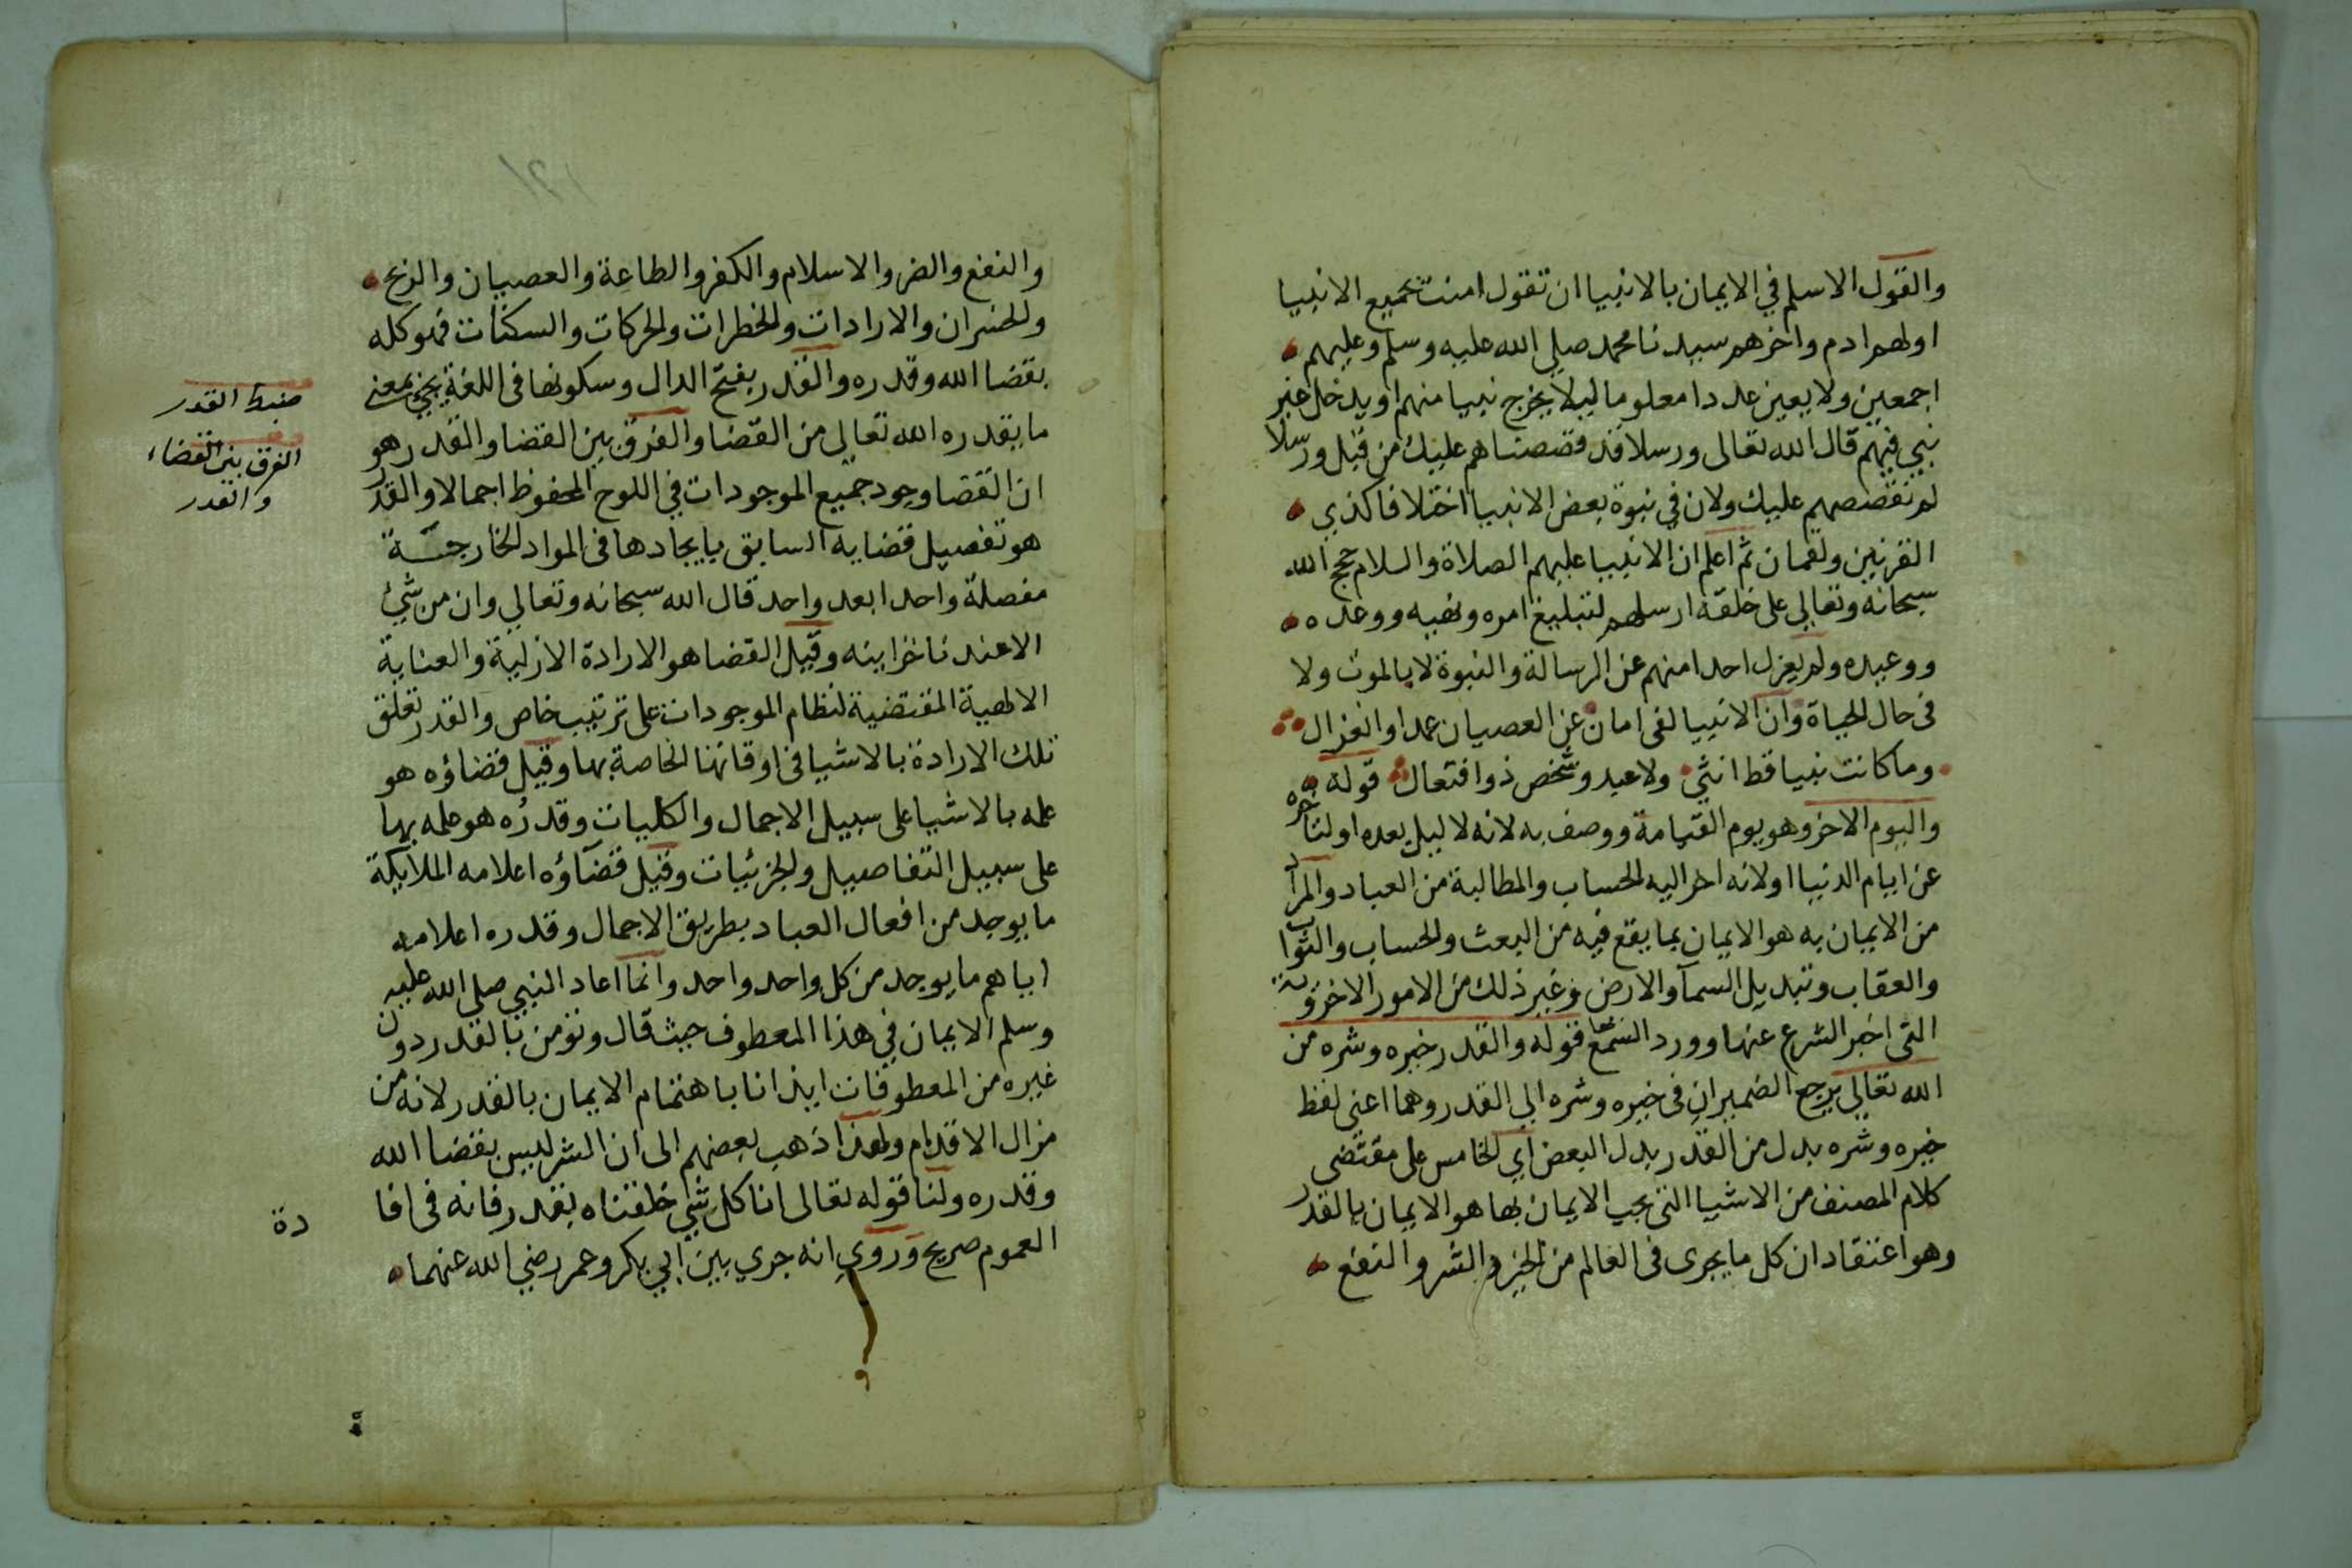 والقول الاسلم في الايمان بالانبيا ان تقول امنت بجميع الانبيا
اولهم ادم واخرهم سيدنا محمد صلي الله عليه وسلم وعليهم
اجمعين ولا يعين عددا معلوما ليلا يخرج نبيا منهم او يدخل غير
نبي فيهم قال الله تعالى ورسلا قد قصصناهم عليك من قبل ورسلا
لم نقصصهم عليك ولان في نبوة بعض الانبيا اختلافا كذي
القرنين ولقمان ثم اعلم ان الانبيا عليهم الصلاة والسلام حجج الله
سبحانه وتعالي على خلقه ارسلهم لتبليغ امره ونهيه ووعده
ووعيده ولم يعزل احدا منهم عن الرسالة والنبوة لا بالموت ولا
فى حال الحياة وان الانبيا لفى امان عن العصيان عمدا وانعزال
وما كانت نبيا قط انثي ولا عبد وشخص ذو افتعال قوله
واليوم الاخر وهو يوم القيامة ووصف به لانه لا ليل بعده او لتاخره
عن ايام الدنيا او لانه اخر اليه الحساب والمطالبة من العباد والمراد
من الايمان به هو الايمان بما يقع فيه من البعث والحساب والثواب
والعقاب وتبديل السمآ والارض وغير ذلك من الامور الاخروية
التى اخبر الشرع عنها وورد السمع قوله والقدر خيره وشره من
الله تعالي يرجع الضميران فى خيره وشره الي القدر وهما اعنى لفظ
خيره وشره بدل من القدر بدل البعض اي الخامس على مقتضى
كلام المصنف من الاشيا التى يجب الايمان بها هو الايمان بالقدر
وهو اعتقاد ان كل ما يجرى فى العالم من الخير والشر والنفع
والنفع والضر والاسلام والكفر والطاعة والعصيان والربح
والخسران والارادات والخطرات والحركات والسكنات فهو كله
بقضا الله وقدره والقدر بفتح الدال وسكونها فى اللغة يجئ بمعنى
ما يقدره الله تعالي من القضا والفرق بين القضا والقدر هو
ان القضا وجود جميع الموجودات في اللوح المحفوظ اجمالا والقدر
هو تفصيل قضايه السابق بايجادها فى المواد الخارجية
مفصلة واحدا بعد واحد قال الله سبحانه وتعالي وان من شئ
الا عندنا خزاينه وقيل القضا هو الارادة الازلية والعناية
الالهية المقتضية لنظام الموجودات على ترتيب خاص والقدر تعلق
تلك الارادة بالاشيا فى اوقاتها الخاصة بها وقيل قضاؤه هو
علمه بالاشيا على سبيل الاجمال والكليات وقدره هو علمه بها
على سبيل التفاصيل والجزئيات وقيل قضآؤه اعلامه الملايكة
ما يوجد من افعال العباد بطريق الاجمال وقدره اعلامه
اياهم ما يوجد من كل واحد واحد وانما اعاد النبي صلى الله عليه
وسلم الايمان في هذا المعطوف حيث قال ونؤمن بالقدر دون
غيره من المعطوفات ايذانا باهتمام الايمان بالقدر لانه من
مزال الاقدام ولهذا ذهب بعضهم الى ان الشر ليس بقضا الله
وقدره ولنا قوله تعالى انا كل شي خلقناه بقدر فانه فى افا
دة
العموم صريح وروي انه جري بين ابي بكر وعمر رضي الله عنهما
ضبط القدر
الفرق بين القضاء
والقدر